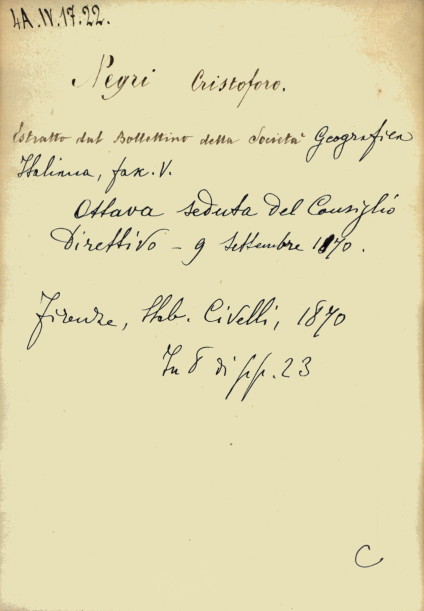 4A.IV.17.22.
Negri Cristoforo.
Estratto dal Bollettino della Società Geografica
Italiana, fasc. V.
Ottava seduta del Consiglio
Direttivo - 9 Settembre 1870.
Firenze, Stab. Civelli, 1870
In 8 di pp. 23
C